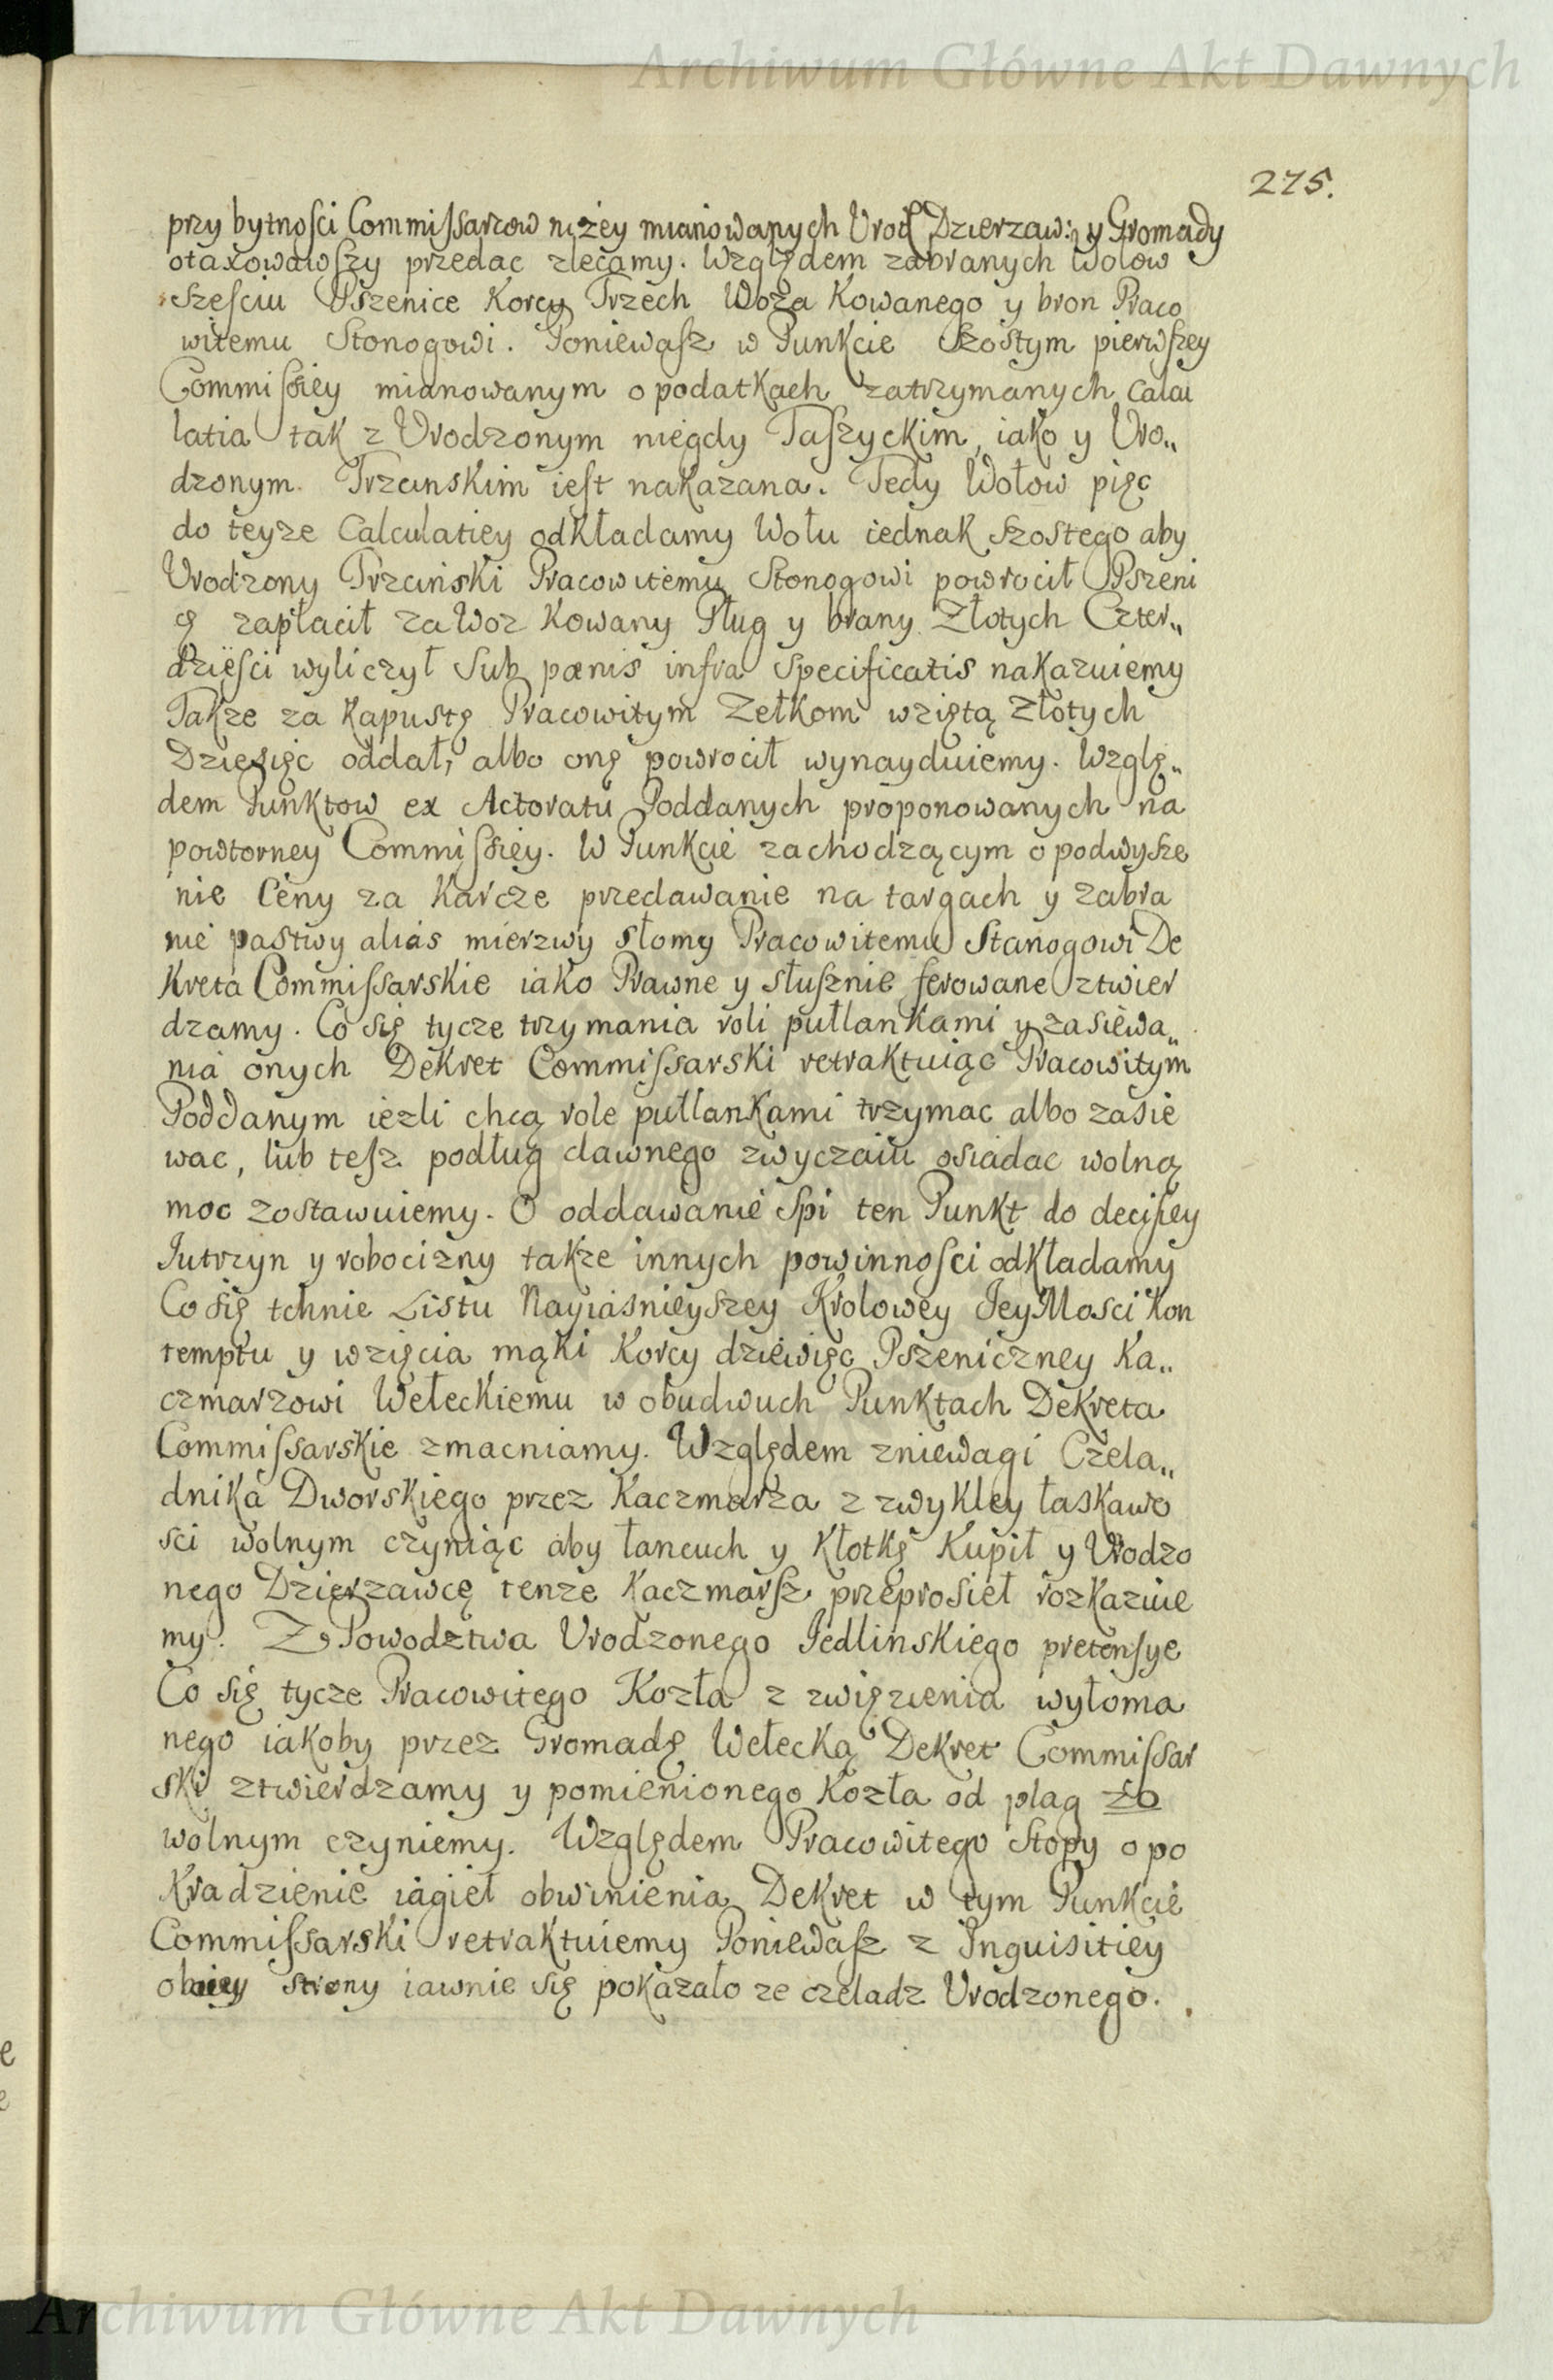 Archiwum Główne Akt Dawnych
275.
przy bytnośći Commissarzow niżey mianowanych Urod Dzierzaw: y Gromady
otaxowawszy przedac zlecamy. Względem zabranych Wołow
sześciu Pszenice Korcy Trzech Woza Kowanego y bron Praco
witemu Stonogowi. Poniewasz w Punkcie Szostym pierwszey
Commissiey mianowanym o podatkach zatrzymanych Calcu
latia tak z Urodzonym niegdy Taszyckim, iako y Uro„
dzonym Trzcinskim iest nakazana. Tedy Wołow pięc
do teyze Calculatiey odkładamy Wołu iednak szostego aby
Urodzony Trzciński Pracowitemu Stonogowi powrocił Pszeni
cę zapłacił za Woz Kowany Pług y brany Złotych Czter„
dzieści wyliczył sub pænis infra specificatis nakazuiemy
Takze za kapustę Pracowitym Zełkom wziętą złotych
Dziesięc oddał, albo onę powrocił wynayduiemy. Wzglę„
dem Punktow ex Actoratu Poddanych proponowanych na
powtorney Commissiey. W Punkcie zachodzącym o podwysze
nie Ceny za Karcze przedawanie na targach y zabra
nie pastwy alias mierzwy słomy Pracowitemu Stanogowi De
kreta Commissarskie iako Prawne y słusznie ferowane ztwier
dzamy. Co się tycze trzymania roli pułlankami y zasiewa„
nia onych Dekret Commissarski retraktuiąc Pracowitym
Poddanym iezli chcą role pułlankami trzymac albo zasie
wac, lub tesz podług dawnego zwyczaiu osiadac wolną
moc zostawuiemy. O oddawanie Spi ten Punkt do decisiey
Jutrzyn y robocizny takze innych powinnosci odkładamy
Co się tchnie Listu Nayiasnieyszey Krolowey JeyMosci Kon
temptu y wzięcia mąki Korcy dziewięc Pszeniczney Ka„
czmarzowi Wełeckiemu w obudwuch Punktach Dekreta
Commissarskie zmacniamy. Względem zniewagi Czela„
dnika Dworskiego przez Kaczmarza z zwykley łaskawo
sci wolnym czyniąc aby łancuch y kłotkę kupił y Urodzo
nego Dzierzawcę tenze Kaczmarsz przeprosieł rozkazuie
my. Z Powodztwa Urodzonego Jedlinskiego pretensye
Co się tycze Pracowitego Kozła z zwięzienia wyłoma
nego iakoby przez Gromadę Wełecką Dekret Commissar
ski ztwierdzamy y pomienionego Kozła od plag
wolnym czyniemy. Względem Pracowitego Stopy o po
kradzienie iagieł obwinienia Dekret w tym Punkcie
Commissarski retraktuiemy Poniewasz z Inquisitiey
strony iawnie się pokazało ze czeladz Urodzonego.
Archiwum Główne Akt Dawnych